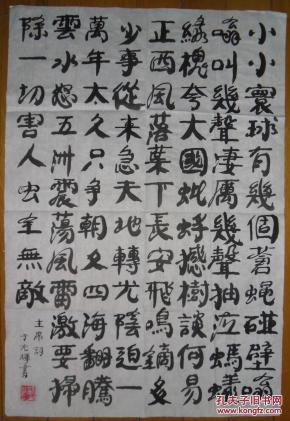 小小寰球有幾個蒼蠅碰壁嗡
嗡叫幾聲凄厲幾聲抽泣螞蟻
緣槐夸大國蚍蜉撼樹談何易
正西風落葉下長安飛鳴鏑多
少事從來急天地轉光陰迫一
萬年太久只爭朝夕四海翻騰
雲水怒五洲震蕩風雷激要掃
除一切害人虫全無敵
主席詞
書
孔夫子旧书网